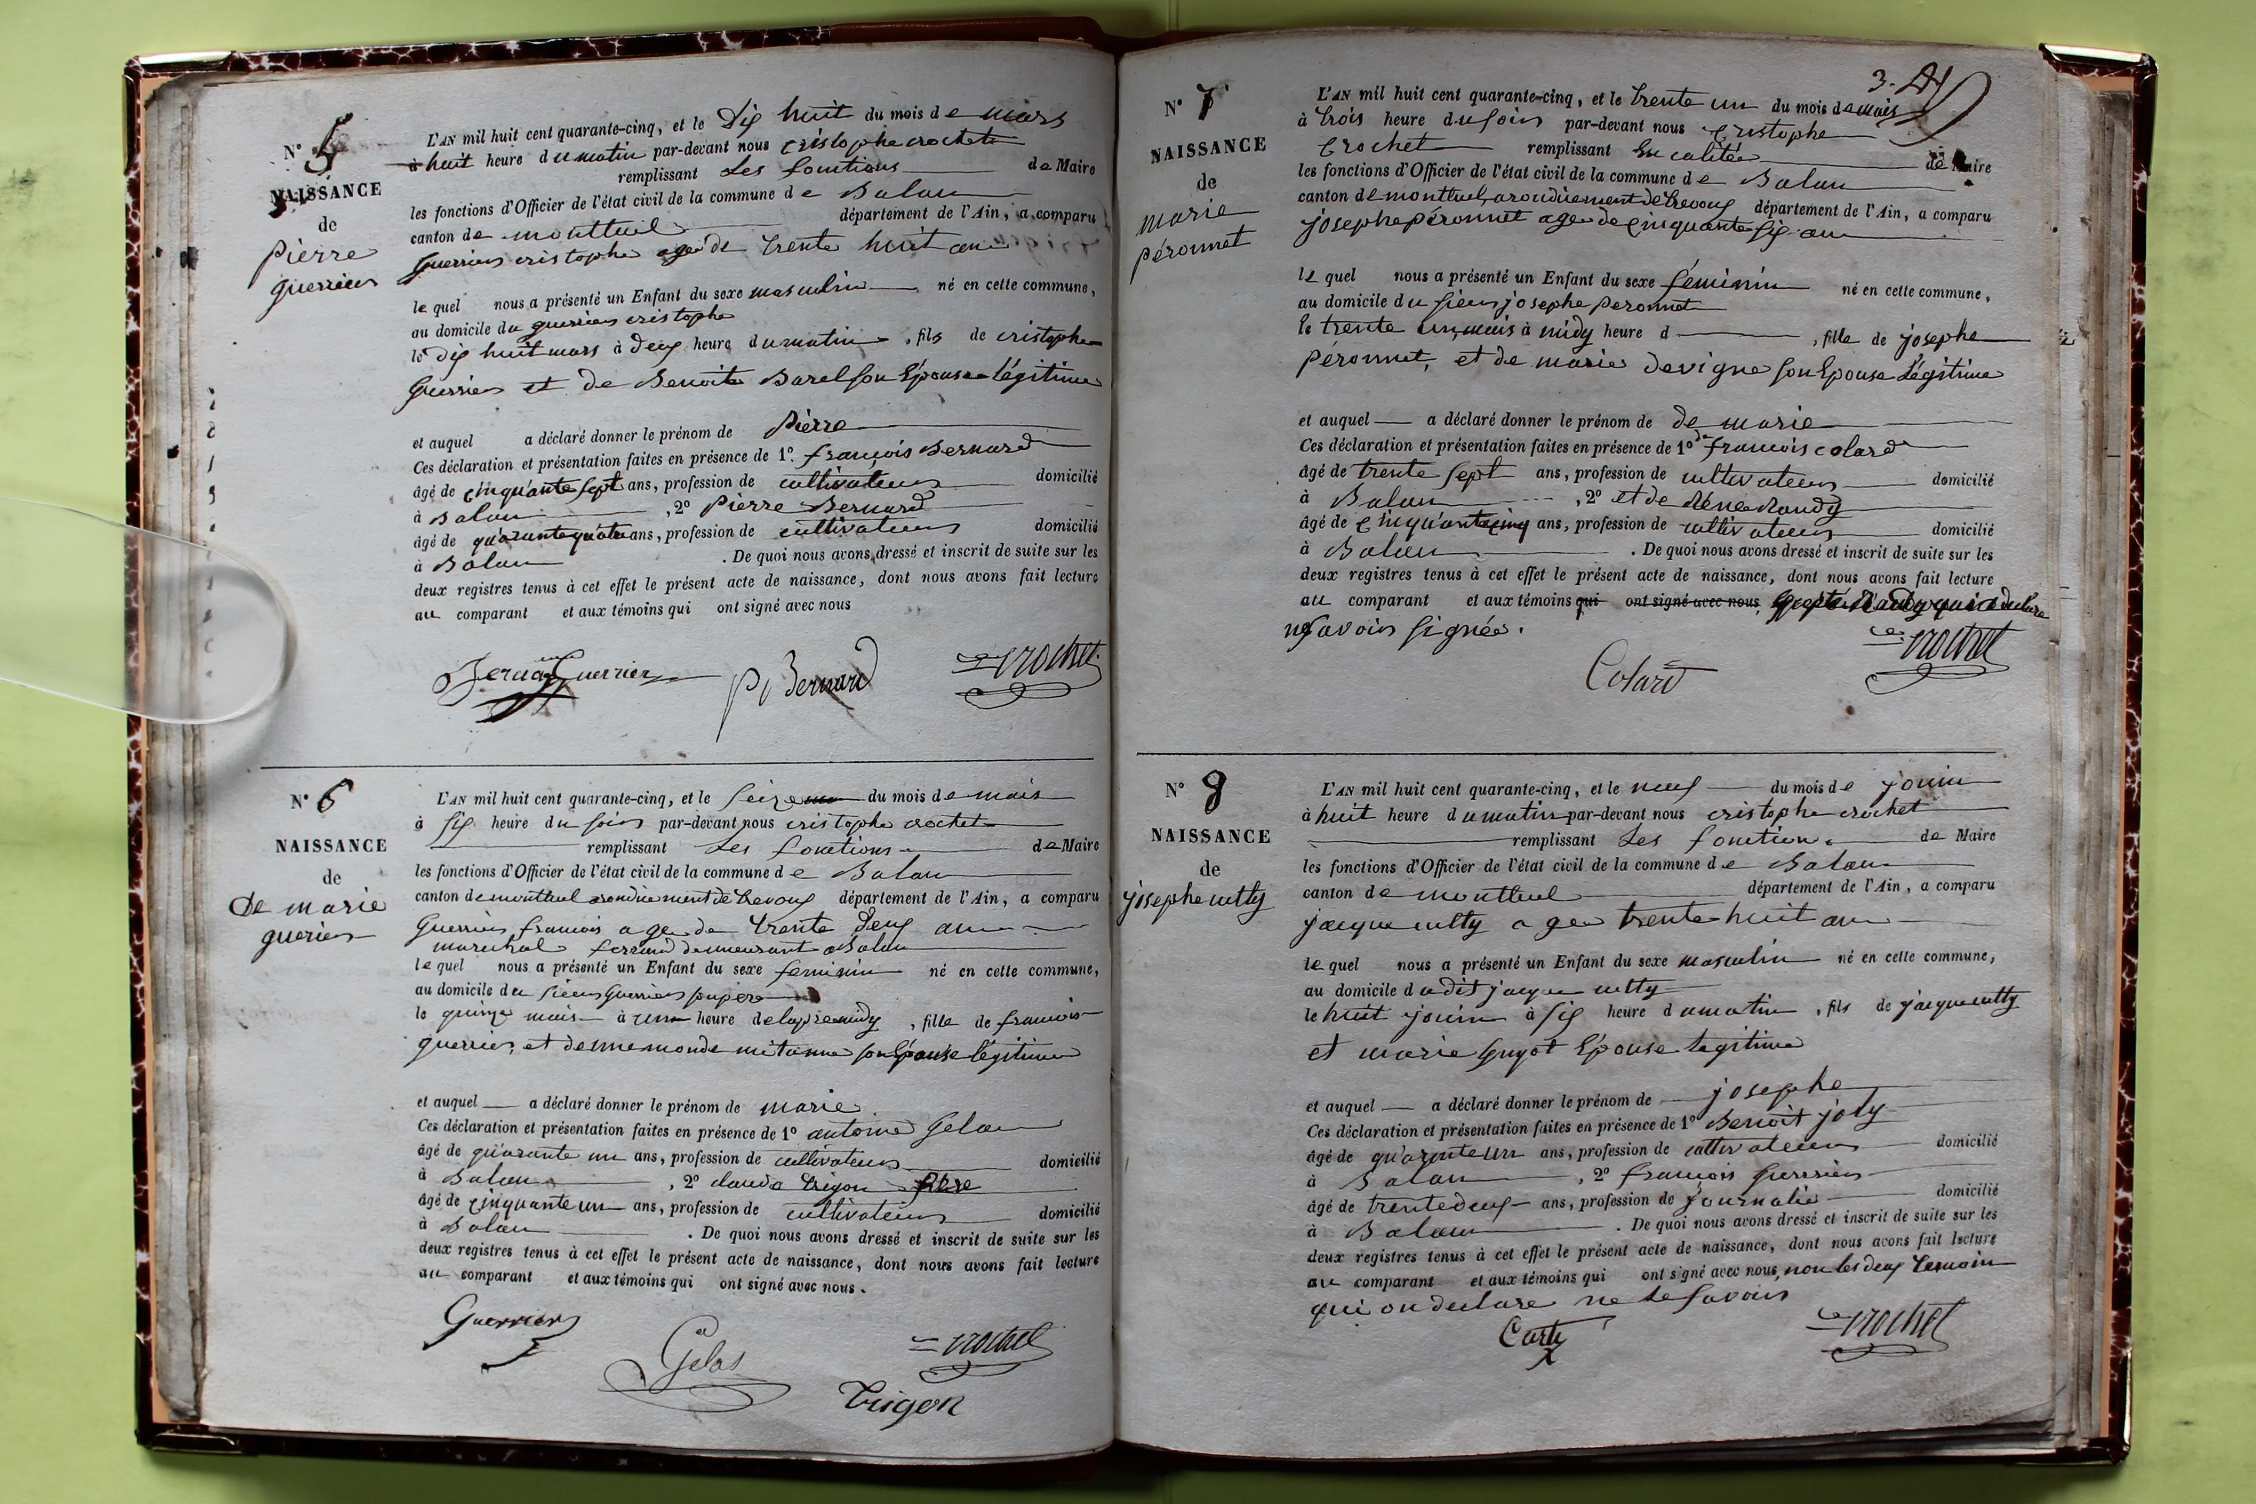 N° 5
NAISSANCE
de
Pierre
guerrier
L'AN mil huit cent quarante-cinq, et le Dix huit du mois de mars
à huit heure du matin par-devant nous cristophe crochet
remplissant Les fonctions de Maire
les fonctions d'Officier de l'état civil de la commune de Balan
canton de montluel département de l'Ain, a comparu
guerrier cristophe agé de trente huit an
le quel nous a présenté un Enfant du sexe masculin né en cette commune,
au domicile du guerrier cristophe
le dix huit mars à deux heure du matin, fils de cristophe
Guerrier et de Benoite Barel son Épouse légitime
et auquel a déclaré donner le prénom de Pierre
Ces déclaration et présentation faites en présence de 1° françois Bernard
âgé de cinquante sept ans, profession de cultivateur domicilié
à Balan, 2° Pierre Bernard
âgé de quarante quatre ans, profession de cultivateur domicilié
à Balan. De quoi nous avons dressé et inscrit de suite sur les
deux registres tenus à cet effet le présent acte de naissance, dont nous avons fait lecture
au comparant et aux témoins qui ont signé avec nous
Bernard Guerrier P Bernard crochet
N° 6
NAISSANCE
de
De marie
guerier
L'AN mil huit cent quarante-cinq, et le seize du mois de mais
à six heure du soir par-devant nous cristophe crochet
remplissant Les fonctions de Maire
les fonctions d'Officier de l'état civil de la commune de Balan
canton de montluel arondicement de trevoux département de l'Ain, a comparu
Guerrier francois age de trente deux an
marechal ferrand demeurant a Balan
le quel nous a présenté un Enfant du sexe feminin né en cette commune,
au domicile du sieur Guerrier son pere
le quinze mais à une heure de lapremidy, fille de francois
guerrier, et de son Épouse légitime
et auquel a déclaré donner le prénom de marie
Ces déclaration et présentation faites en présence de 1° antoine Gelas
âgé de quarante un ans, profession de cultivateur domicilié
à Balan, 2° claude trigon père
âgé de cinquante un ans, profession de cultivateur domicilié
à Balan. De quoi nous avons dressé et inscrit de suite sur les
deux registres tenus à cet effet le présent acte de naissance, dont nous avons fait lecture
au comparant et aux témoins qui ont signé avec nous.
Guerrier
Gelas crochet
Trigon
3.
N° 7
NAISSANCE
de
marie
péronnet
L'AN mil huit cent quarante-cinq, et le trente un du mois de mais
à trois heure du soir par-devant nous Cristophe
Crochet remplissant En calitée de Maire
les fonctions d'Officier de l'état civil de la commune de Balan
canton de montluel, arondicement de trevoux département de l'Ain, a comparu
josephe péronnet age de cinquante six an
le quel nous a présenté un Enfant du sexe féminin né en cette commune,
au domicile du sieur josephe peronnet
le trente un mais à midy heure d, fille de josephe
Péronnet, et de marie devigne son Epouse Légitime
et auquel a déclaré donner le prénom de de marie
Ces déclaration et présentation faites en présence de 1° de francois colard
âgé de trente sept ans, profession de cultivateur domicilié
à Balan, 2° et de
âgé de cinquante cinq ans, profession de cultivateur domicilié
à Balan. De quoi nous avons dressé et inscrit de suite sur les
deux registres tenus à cet effet le présent acte de naissance, dont nous avons fait lecture
au comparant et aux témoins qui ont signé avec nous, qui a declare
ne savoir signée.
Colard crochet
N° 8
NAISSANCE
de
josephe cutty
L'AN mil huit cent quarante-cinq, et le neuf du mois de jouin
à huit heure du matin par-devant nous cristophe crochet
remplissant Les fonction de Maire
les fonctions d'Officier de l'état civil de la commune de Balan
canton de montluel département de l'Ain, a comparu
jacque cutty age trente huit an
le quel nous a présenté un Enfant du sexe masculin né en cette commune,
au domicile du dit jacque cutty
le huit jouin à six heure du matin, fils de jacque cutty
et marie Guyot Épouse legitime
et auquel a déclaré donner le prénom de josephe
Ces déclaration et présentation faites en présence de 1° Benoit joly
âgé de quarante un ans, profession de cultivateur domicilié
à Balan, 2° francois Guerrier
âgé de trente deux ans, profession de journalie domicilié
à Balan. De quoi nous avons dressé et inscrit de suite sur les
deux registres tenus à cet effet le présent acte de naissance, dont nous avons fait lecture
au comparant et aux témoins qui ont signé avec nous, non les deux temoin
qui on declare ne le savoir
crochet